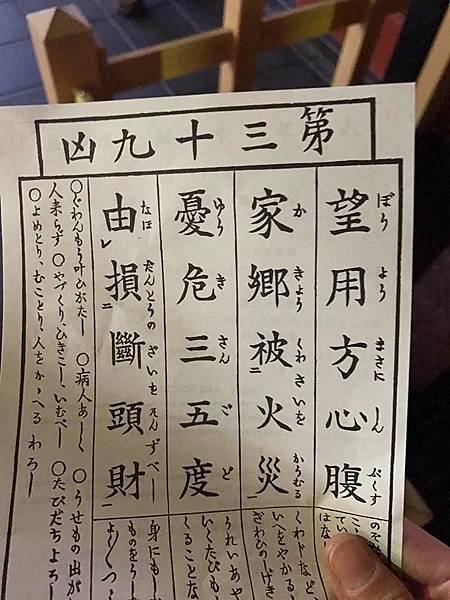 第三十九凶
望用方心腹
ぼう よう まさに しん ぷくす
家郷被火災
か きょう くわさいを かうむる
憂危三五度
ゆう き さん ご ど
由損斷頭財
なほ だんとうの ざいを そんずべし
のぞみ
はな
くわドなど
いへをやかる
ざわひのげき
うれいあや
いくたびも
くることな
身にもし
ものをう
よくつ
〇ぐわんもう叶ひがたし 〇病人あしく 〇うせもの出が
人来らず 〇やづくり、ひきこし、いむべし 〇たびだちよろし
〇よめとり、むことり、人をかゝへる わろし